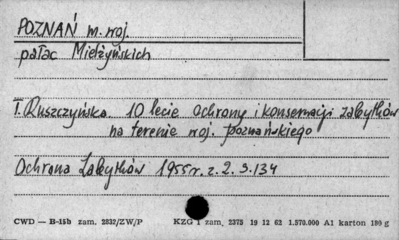 POZNAŃ m. woj.
pałac Mielżyńskich
T. Ruszczyńska 10 lecie ochrony i konserwacji zabytków
na terenie woj. poznańskiego
Ochrona Zabytków 1955 r. z. 2. s. 134
CWD — B-15b zam. 2832/ZW/P KZG 1 zam. 2375 19 12 62 1.570.000 A1 karton 180 g